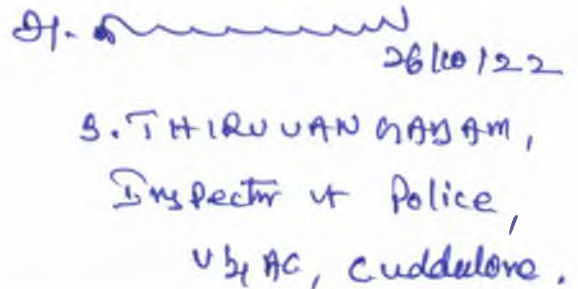 26/10/22
S. THIRUVANGADAM,
Inspector of Police,
V & AC, Cuddalore.